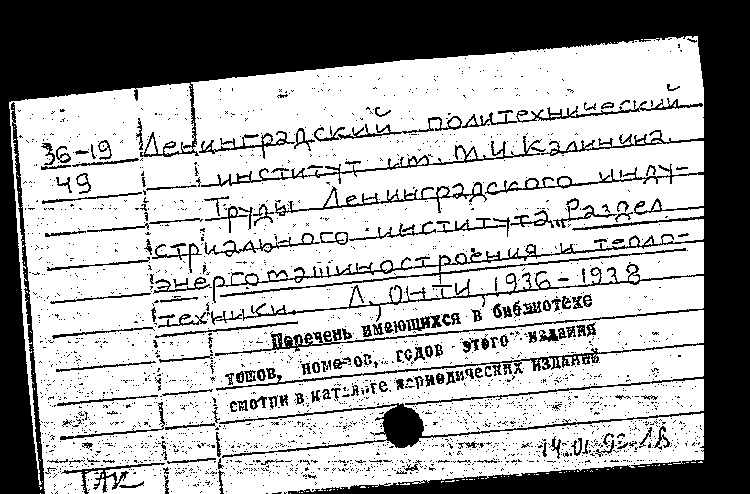 36-19 Ленинградский политехнический
49 институт им. М.И. Калинина.
Труды Ленинградского инду-
стриального института. Раздел
энергомашиностроения и тепло-
техники. Л, ОНТИ, 1936-1938
Перечень имеющихся в библиотеке
томов, номеров, годов этого издания
смотри в каталоге периодических изданий
14.01.93
ГАК